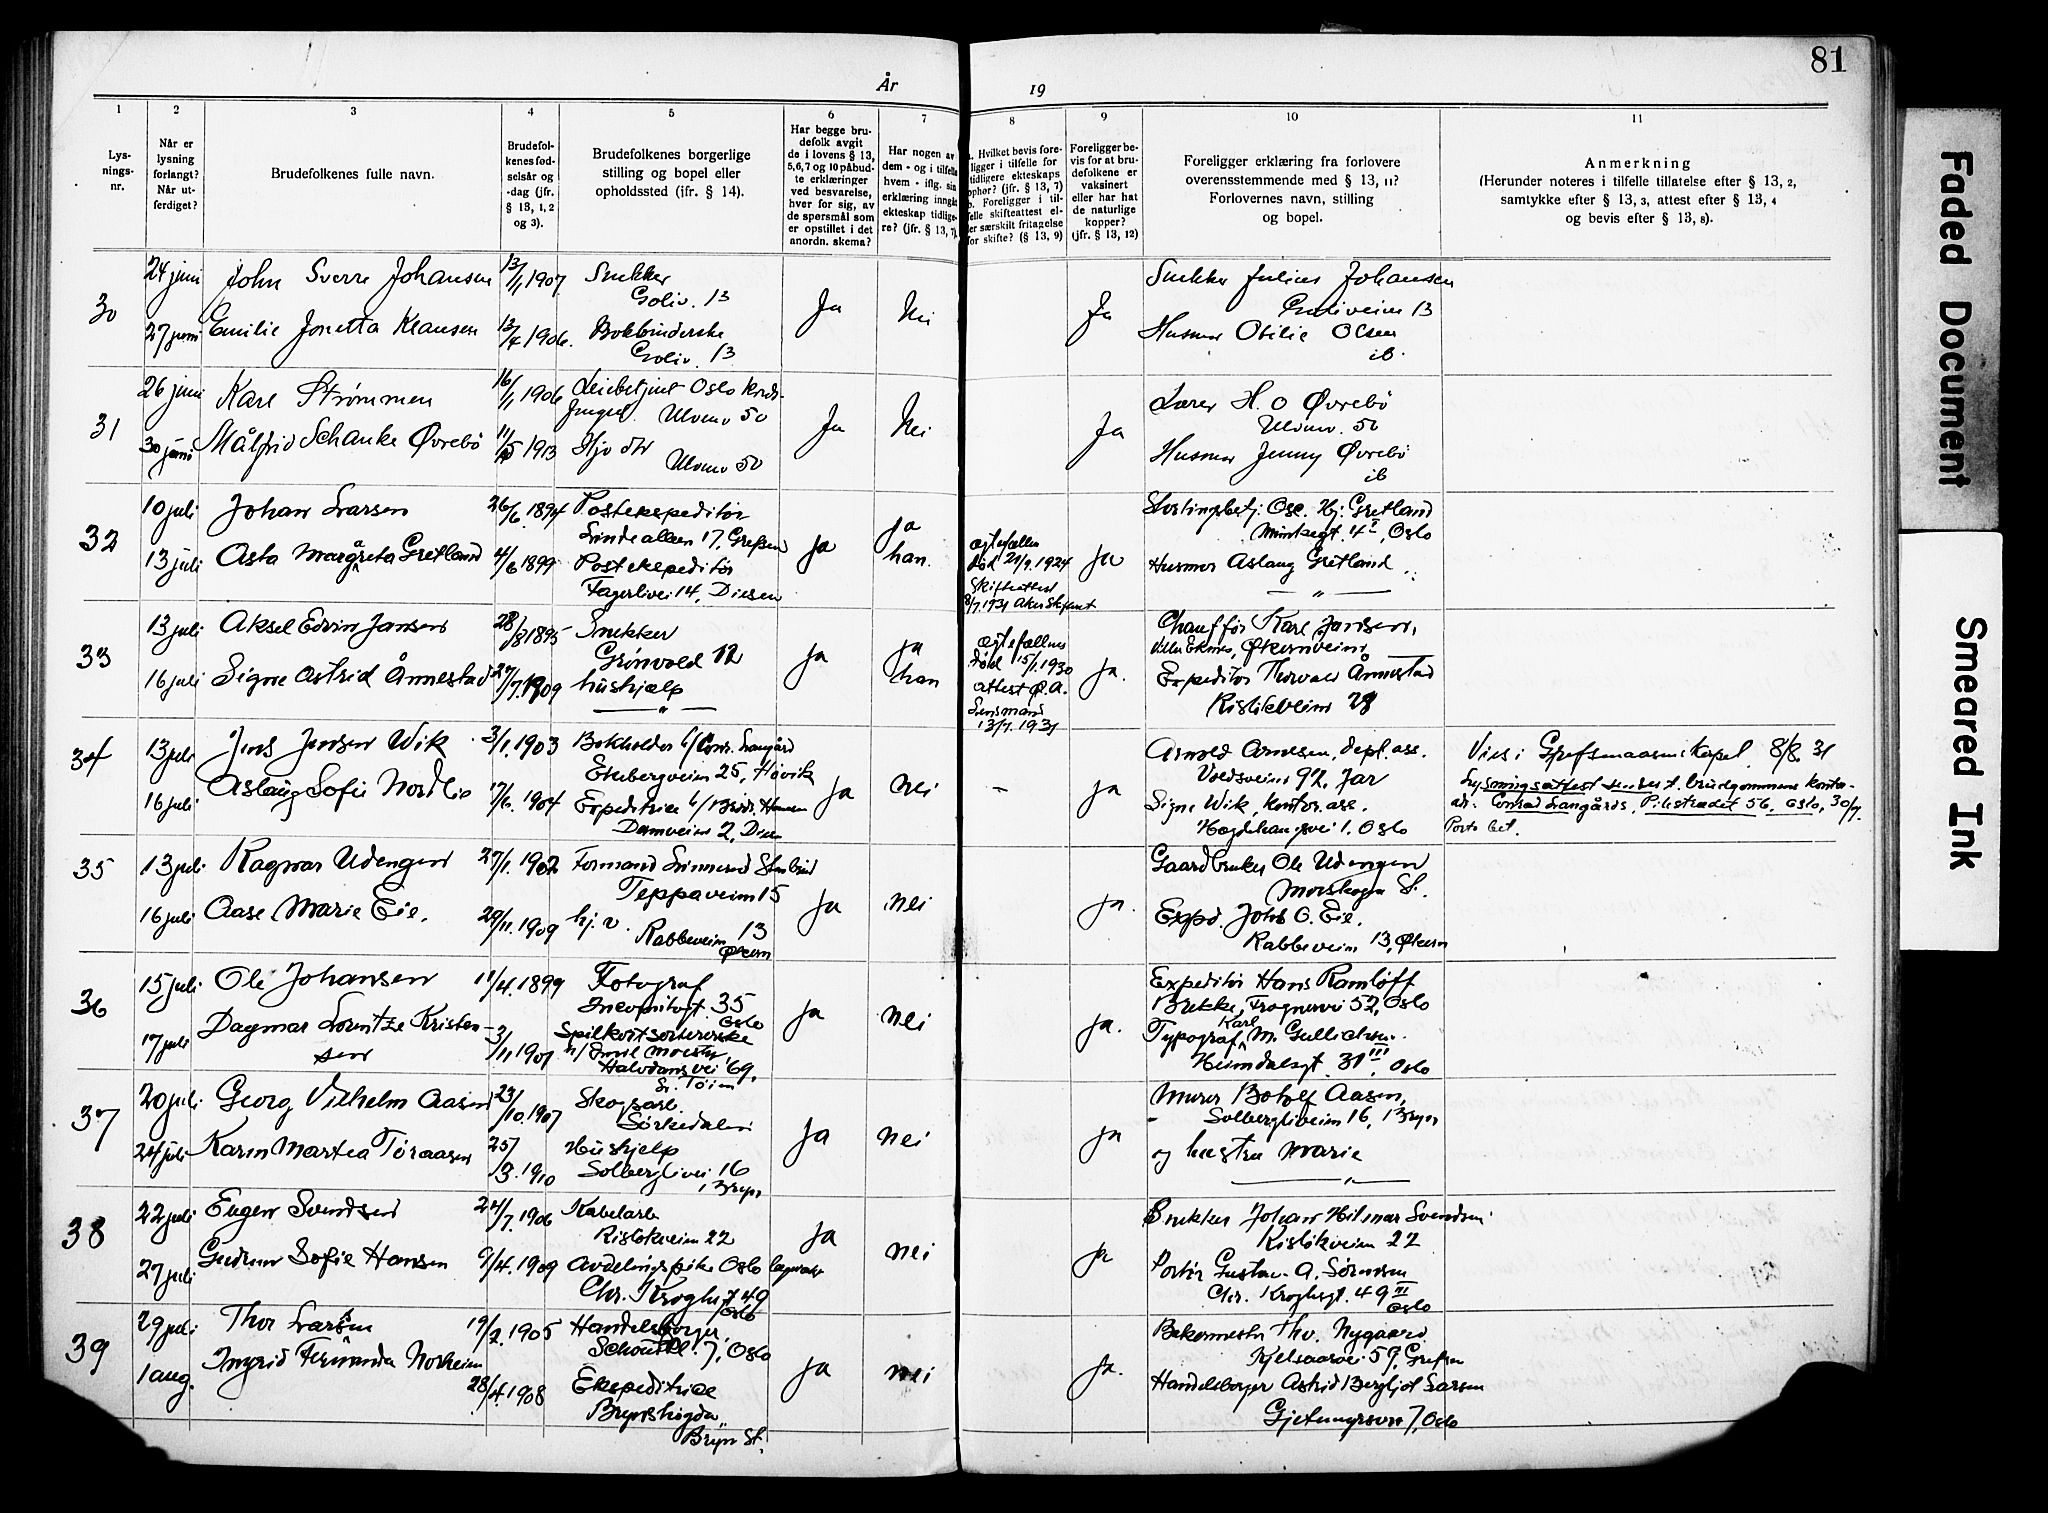 81
År 19
1 2 3 4 5 6 7 8 9 10 11
Lysningsnr.
Når er lysning forlangt? Når utferdiget?
Brudefolkenes fulle navn.
Brudefolkenes fødselsår og -dag (jfr. § 13, 1, 2 og 3).
Brudefolkenes borgerlige stilling og bopel eller opholdssted (jfr. § 14).
Har begge brudefolk avgit de i lovens § 13, 5,6,7 og 10 påbudte erklæringer ved besvarelse, hver for sig, av de spørsmål som er opstillet i det anordn. skema?
Har nogen av dem - og i tilfelle hvem - iflg. sin erklæring inngått ekteskap tidligere? (jfr. § 13, 7).
Hvilket bevis foreligger i tilfelle for tidligere ekteskaps ophør? (jfr. § 13, 7) b. Foreligger i tilfelle skifteattest eller særskilt fritagelse for skifte? (§ 13, 9)
Foreligger bevis for at brudefolkene er vaksinert eller har hat de naturlige kopper? (jfr. § 13, 12)
Foreligger erklæring fra forlovere overensstemmende med § 13, 11? Forlovernes navn, stilling og bopel.
Anmerkning
(Herunder noteres i tilfelle tillatelse efter § 13, 2, samtykke efter § 13, 3, attest efter § 13, 4 og bevis efter § 13, 8).
30
24 juni John Sverre Johansen 13/1 1907 Snekker
Goliv. 13
27 juni Emilie Jonetta Klausen 13/4 1906. Bokbinderske
Goliv. 13
Ja Nei Ja
Snekker Julius Johansen
Goliveien 13
Husmor Otilie Olsen
ib.
31
26 juni Karl Strømmen 16/1 1906
Ulvenv 50
30 juni Målfrid Schanke Øvrebö 11/5 1913 Hjv. dtr
Ulvenv 50
Ja Nei Ja
Lærer H. O Øvrebö
Ulvenv. 50
Husmor Jenny Øvrebö
ib
32
10 juli Johan Larsen 26/6. 1894 Postekspeditör
Lindealleen 17, Grefsen
13 juli Asta Margreta Gretland 4/6 1899 Postekspeditör
Fagerlivei 14, Disen
ja ja han.
egtefællen død 21/9. 1924
Skifteattest
8/7. 1931 Aker Skifteret
ja
Stortingsbetj. Osc. Hj. Gretland
Munkegt. 4 I, Oslo
Husmor Aslaug Gretland
— " —
33
13 juli Aksel Edvin Jansen 28/8 1895 Snekker
Grönvold 12
16 juli Signe Astrid Ånnestad 27/7. 1909 hushjelp
— " —
ja ja han
egtefællens død 15/1. 1930
attest Ø. A.
Lensmand
13/7. 1931
ja.
Chauffør Karl Jansen,
Villa Eknes, Økernveien
Expeditör Thorvald Ånnestad
Risløkveien 28
34
13 juli Jens Jensen Wik 3/1. 1903 Bokholder h/Conr. Langård
Ekebergveien 25, Høvik
16 juli Aslaug Sofie Nordlie 17/6. 1904 Expeditrice h/Brdr. Hansen
Damveien 2, Disen
ja nei - ja
Arnold Arnesen, depl. ass.
Voldsveien 92, Jar
Signe Wik, kontorass.
Hegdehaugsvei 1. Oslo
Vies i Grefsen 8/8. 31
Lysningsattest sendes t. brudgommens kontoradr. Conrad Langårds, Pilestrædet 56, Oslo, 30/7.
Porto bet.
35
13 juli Ragnar Udengen 27/1. 1902 Formand
Teppaveien 15
16 juli Aase Marie Eie. 29/11. 1909 hj. v.
Rabbeveien 13
Økern
ja nei ja.
Gaardbruker Ole Udengen
Morskogen St.
Exped. Johs O. Eie.
Rabbeveien 13, Økern
36
15 juli Ole Johansen 11/4. 1899 Fotograf
Incognitogt. 35
Oslo
17 juli Dagmar Lorntze Kristensen 3/11 1907 Spilkortsorterske
h/ Emil Moestue
Halvdansvei 69.
Ja nei ja.
Expeditör Hans Ramløff
Brekke, Frognervei 52, Oslo
Typograf Karl M. Gullichsen.
Heimdalsgt. 31 III, Oslo
37
20 juli Georg Vilhelm Aasen 23/10. 1907 Skogsarb.
Sörkedalen
24 juli Karin Martea Töraasen 25/3. 1910 Hushjelp
Solberglivei 16
, Bryn
ja nei ja
Murer Botolf Aasen,
Solbergliveien 16, Bryn
og hustru Marie
— " —
38
22 juli Eugen Svendsen 24/7. 1906 Kabelarb
Risløkveien 22
27 juli Gudrun Sofie Hansen 9/4. 1909 Avdelingspike Oslo
Chr. Kroghsgt 49
Oslo
ja nei ja
Snekker Johan Hilmar Svendsen
Risløkveien 22
Portör Gustav A. Sörensen
Chr. Kroghsgt. 49 II
Oslo
39
29 juli Thor Larsen 19/2. 1905 Handelsborger,
7, Oslo
1 aug. Ingrid Fernanda Norheim 28/4. 1908 Ekspeditrice
Brynshögda,
Bryn St.
ja nei ja.
Bakermester Thv. Nygaard
Kjelsaasvei 59, Grefsen
Handelsborger Astrid Bergljot Larsen
Gjetemyrsvei 7, Oslo
Faded Document
Smeared Ink